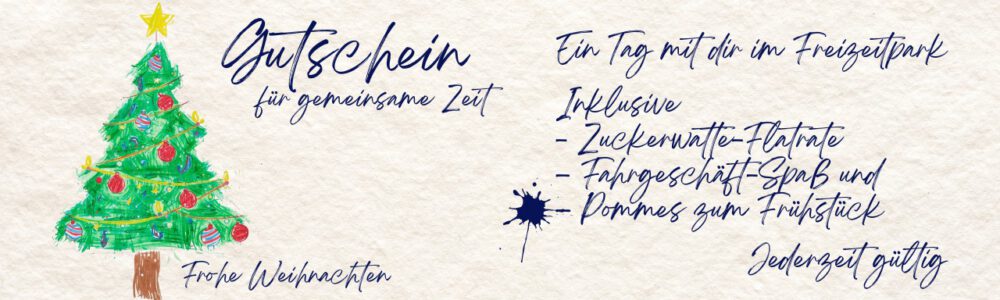 Gutschein
für gemeinsame Zeit
Frohe Weihnachten
Ein Tag mit dir im Freizeitpark
Inklusive
- Zuckerwatte-Flatrate
- Fahrgeschäft-Spaß und
- Pommes zum Frühstück
Jederzeit gültig